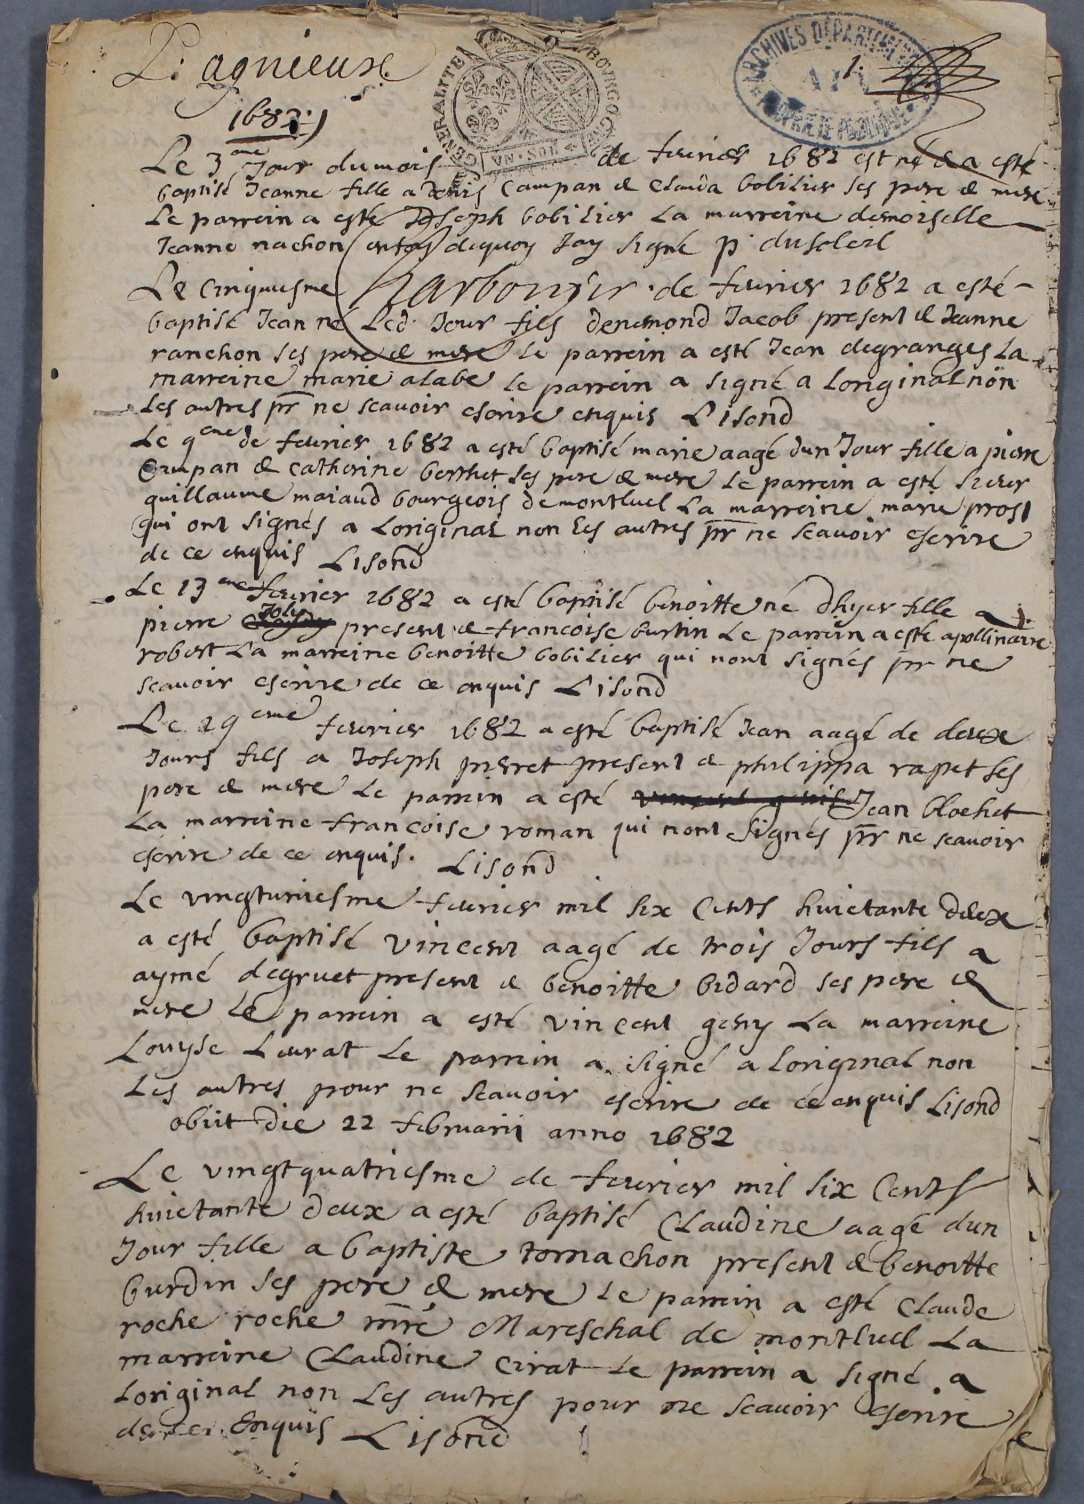 P. agnieuse
1682
GENERALITE BOURGOGNE
ARCHIVES DÉPARTEMENTALES
AIN
PROPRIÉTÉ PUBLIQUE
1.
Le 3eme Jour du mois de feurier 1682 est né & a esté
baptisé Jeanne fille a denis Campan & Clauda bobilier ses pere & mere
Le parrein a esté Joseph bobilier La marreine demoiselle
Jeanne nachon en foy dequoy Jay signé p. dusoleil
Charbonnier
Le cinquiesme de feurier 1682 a esté
baptisé Jean né Led. Jour fils de Jacob present & Jeanne
ranchon ses pere & mere le parrein a esté Jean degranges La
marreine marie alabe le parrein a signé a Loriginal non
Les autres pr ne scauoir escrire enquis Lisond
Le 9eme de feurier 1682 a esté baptisé marie aagé dun Jour fille a pierre
Campan & Catherine berthet ses pere & mere Le parrein a esté sieur
guillaume maiaud bourgeois de montluel La marreine marie prost
qui ont signés a Loriginal non Les autres pr ne scauoir escrire
de ce enquis Lisond
Le 13eme feurier 1682 a esté baptisé benoitte né dhyer fille a
pierre Joly present & francoise burtin Le parrein a esté apollinaire
robert La marreine benoitte bobilier qui nont signés pr ne
scauoir escrire de ce enquis Lisond
Le 19eme feurier 1682 a esté baptisé Jean aagé de deux
Jours fils a Joseph pierret present & philippa rapet ses
pere & mere Le parrein a esté Jean blochet
La marreine francoise roman qui nont signés pr ne scauoir
escrire de ce enquis. Lisond
Le vingtuniesme feurier mil six Cents huictante deux
a esté baptisé vincent aagé de trois Jours fils a
aymé degruet present & benoitte bidard ses pere &
mere Le parrein a esté vincent geny La marreine
Louyse Leurat Le parrein a signé a Loriginal non
Les autres pour ne scauoir escrire de ce enquis Lisond
obiit die 22 februarii anno 1682
Le vingtquatriesme de feurier mil six Cents
huictante deux a esté baptisé Claudine aagé dun
Jour fille a baptiste tornachon present & benoitte
burdin ses pere & mere Le parrein a esté Claude
roche roche mre Mareschal de montluel La
marreine Claudine Cirat Le parrein a signé a
Loriginal non Les autres pour ne scauoir escrire
de ce Enquis Lisond